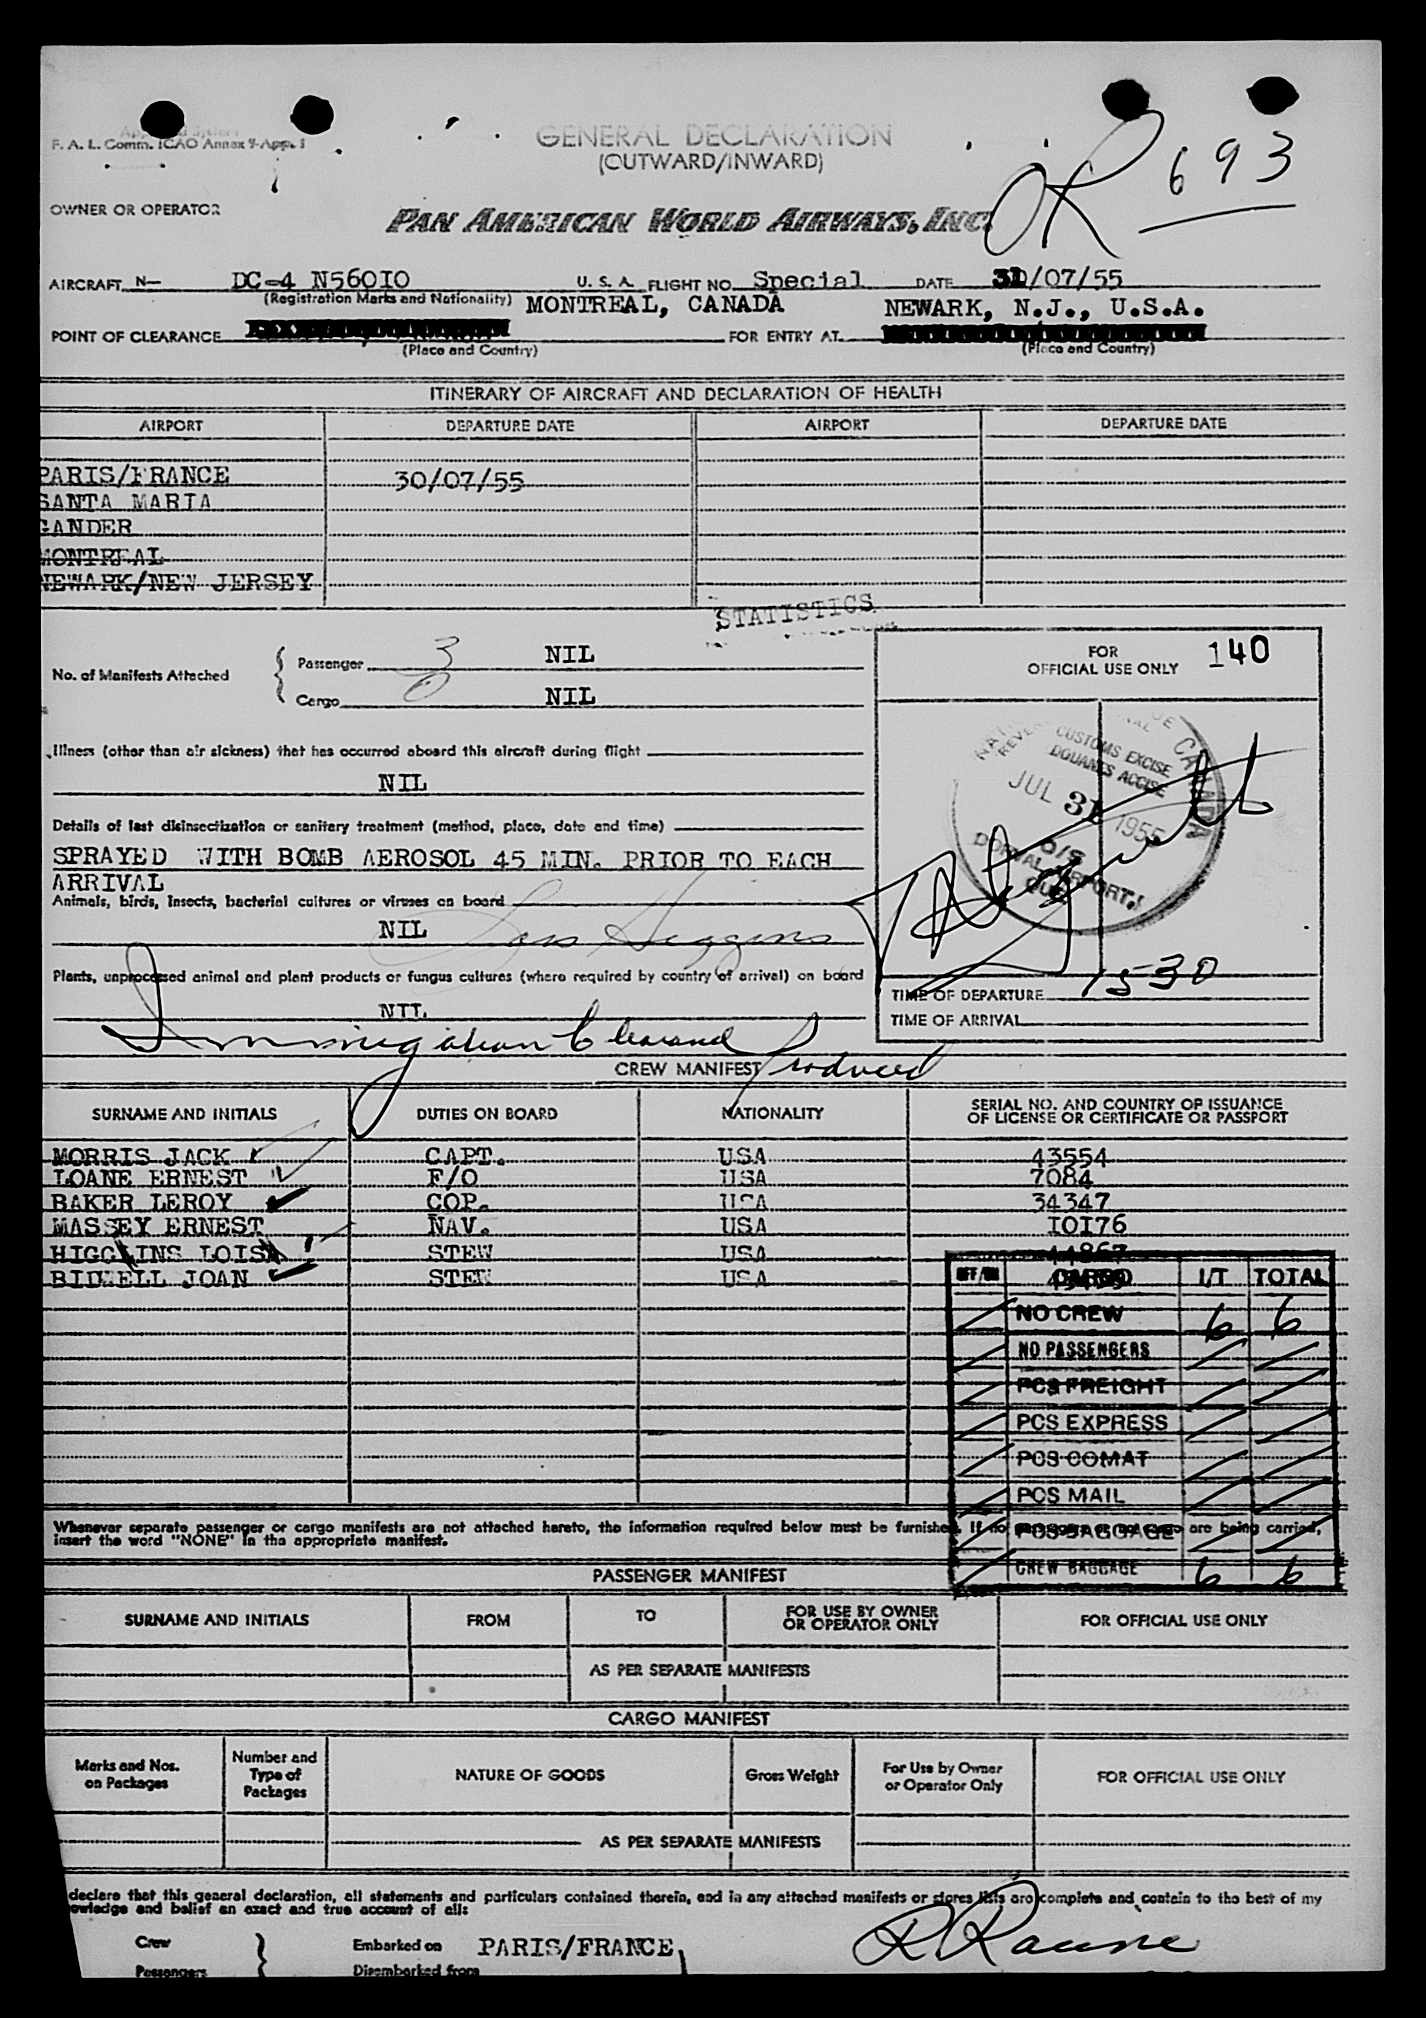 F. A. L. Comm. ICAO Annex 9-App. 1
GENERAL DECLARATION
(OUTWARD/INWARD)
OR 693
OWNER OR OPERATOR
PAN AMERICAN WORLD AIRWAYS, INC.
AIRCRAFT N— DC-4 N56010 U. S. A. FLIGHT NO. Special DATE 31/07/55
(Registration Marks and Nationality) MONTREAL, CANADA NEWARK, N.J., U.S.A.
POINT OF CLEARANCE FOR ENTRY AT
(Place and Country) (Place and Country)
ITINERARY OF AIRCRAFT AND DECLARATION OF HEALTH
AIRPORT DEPARTURE DATE AIRPORT DEPARTURE DATE
PARIS/FRANCE 30/07/55
SANTA MARIA
GANDER
MONTREAL
NEWARK/NEW JERSEY
STATISTICS
No. of Manifests Attached
Passenger 3 NIL
Cargo 0 NIL
FOR
OFFICIAL USE ONLY 140
Illness (other than air sickness) that has occurred aboard this aircraft during flight
NIL
Details of last disinsectization or sanitary treatment (method, place, date and time)
SPRAYED WITH BOMB AEROSOL 45 MIN. PRIOR TO EACH
ARRIVAL
CUSTOMS EXCISE
DOUANES ACCISE
CANADA
JUL 31 1955
O/S
DORVAL AIRPORT,
QUE.
Animals, birds, insects, bacterial cultures or viruses on board
NIL Lois Higgins
Plants, unprocessed animal and plant products or fungus cultures (where required by country of arrival) on board
NIL
TIME OF DEPARTURE 1530
TIME OF ARRIVAL
Immigration Clearance Produced
CREW MANIFEST
SURNAME AND INITIALS DUTIES ON BOARD NATIONALITY SERIAL NO. AND COUNTRY OF ISSUANCE
OF LICENSE OR CERTIFICATE OR PASSPORT
MORRIS JACK CAPT. USA 43554
LOANE ERNEST F/O USA 7084
BAKER LEROY COP. USA 34347
MASSEY ERNEST NAV. USA 10176
HIGGINS LOIS STEW USA 44867
BIDWELL JOAN STEW USA
OFF/ON CARGO I/T TOTAL
NO CREW 6 6
NO PASSENGERS
PCS FREIGHT
PCS EXPRESS
PCS COMAT
PCS MAIL
PCS BAGGAGE
CREW BAGGAGE 6 6
Whenever separate passenger or cargo manifests are not attached hereto, the information required below must be furnished. If no are being carried,
insert the word "NONE" in the appropriate manifest.
PASSENGER MANIFEST
SURNAME AND INITIALS FROM TO FOR USE BY OWNER
OR OPERATOR ONLY FOR OFFICIAL USE ONLY
AS PER SEPARATE MANIFESTS
CARGO MANIFEST
Marks and Nos.
on Packages
Number and
Type of
Packages
NATURE OF GOODS
Gross Weight
For Use by Owner
or Operator Only
FOR OFFICIAL USE ONLY
AS PER SEPARATE MANIFESTS
declare that this general declaration, all statements and particulars contained therein, and in any attached manifests or stores lists are complete and contain to the best of my
owledge and belief an exact and true account of all:
Crew Embarked on PARIS/FRANCE,
Passengers Disembarked from